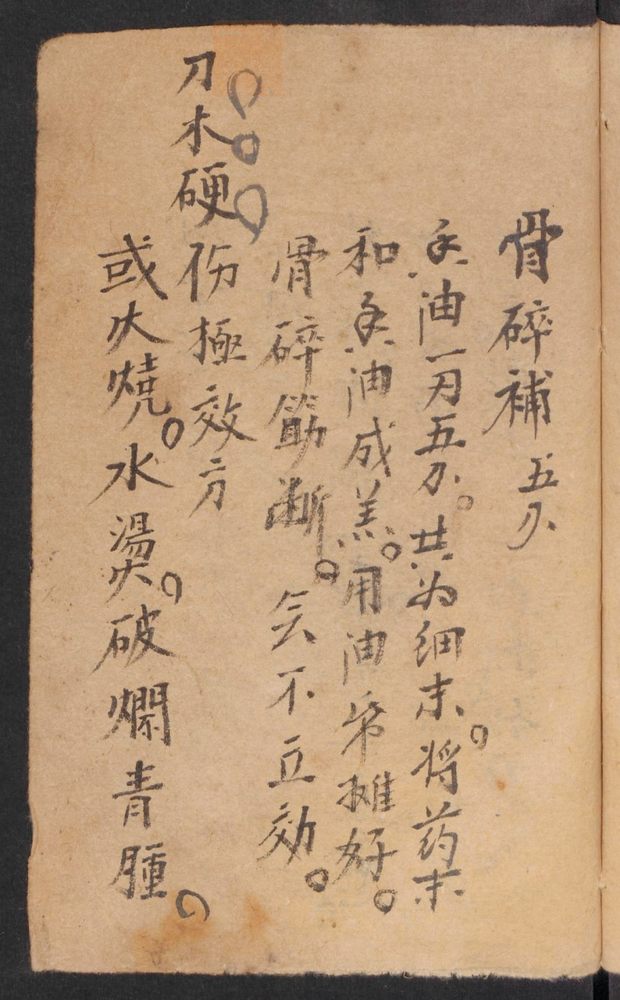 骨碎補 五分
香油一刃五分。共为细末。将药末
和香油成羔。用油帋摊好。
骨碎筋断。无不立効。
刀。木。硬。伤極效方
或火燒。水燙。破爛青腫。